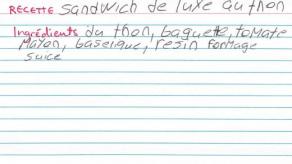 RECETTE Sandwich de luxe au thon
Ingrédients du thon, baguette, tomate
Mayon, baselique, resin formage
suice